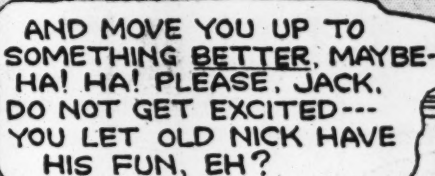 AND MOVE YOU UP TO
SOMETHING BETTER, MAYBE-
HA! HA! PLEASE, JACK,
DO NOT GET EXCITED---
YOU LET OLD NICK HAVE
HIS FUN, EH?